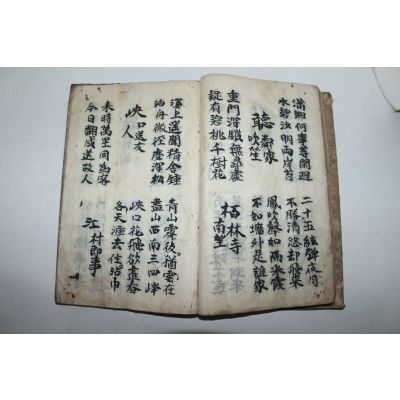 瀟湘何事等閑廻
水碧沙明兩岸苔
二十五絃彈夜月
不勝清怨却飛來
聽鄰家
吹笙
鳳吹聲如隔釆霞
不知墻外是誰家
重門深鎖無尋處
疑有碧桃千樹花
栢林寺
南望
溪上遙聞精舍鍾
泊舟微徑度深松
青山霽後猶雲在
盡山西南三四峰
峽口送友
人
峽口花飛欲盡春
各天涯去住沾巾
來時萬里同為客
今日翻成送故人
江村即事